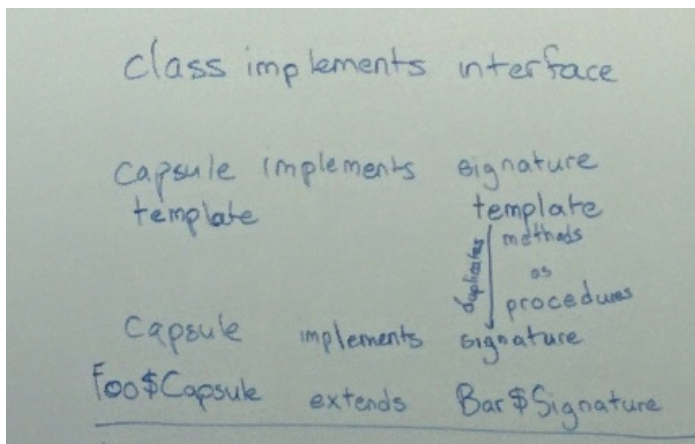 class implements interface
capsule implements signature
template template
duplicates methods
as
procedures
Capsule implements signature
Foo$Capsule extends Bar$Signature